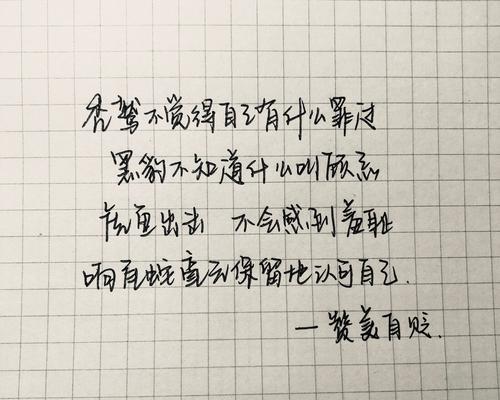 秃鹫不觉得自己有什么罪过
黑豹不知道什么叫顾忌
虎鱼出击 不会感到羞耻
响尾蛇毫无保留地认可自己.
—赞美自贬.